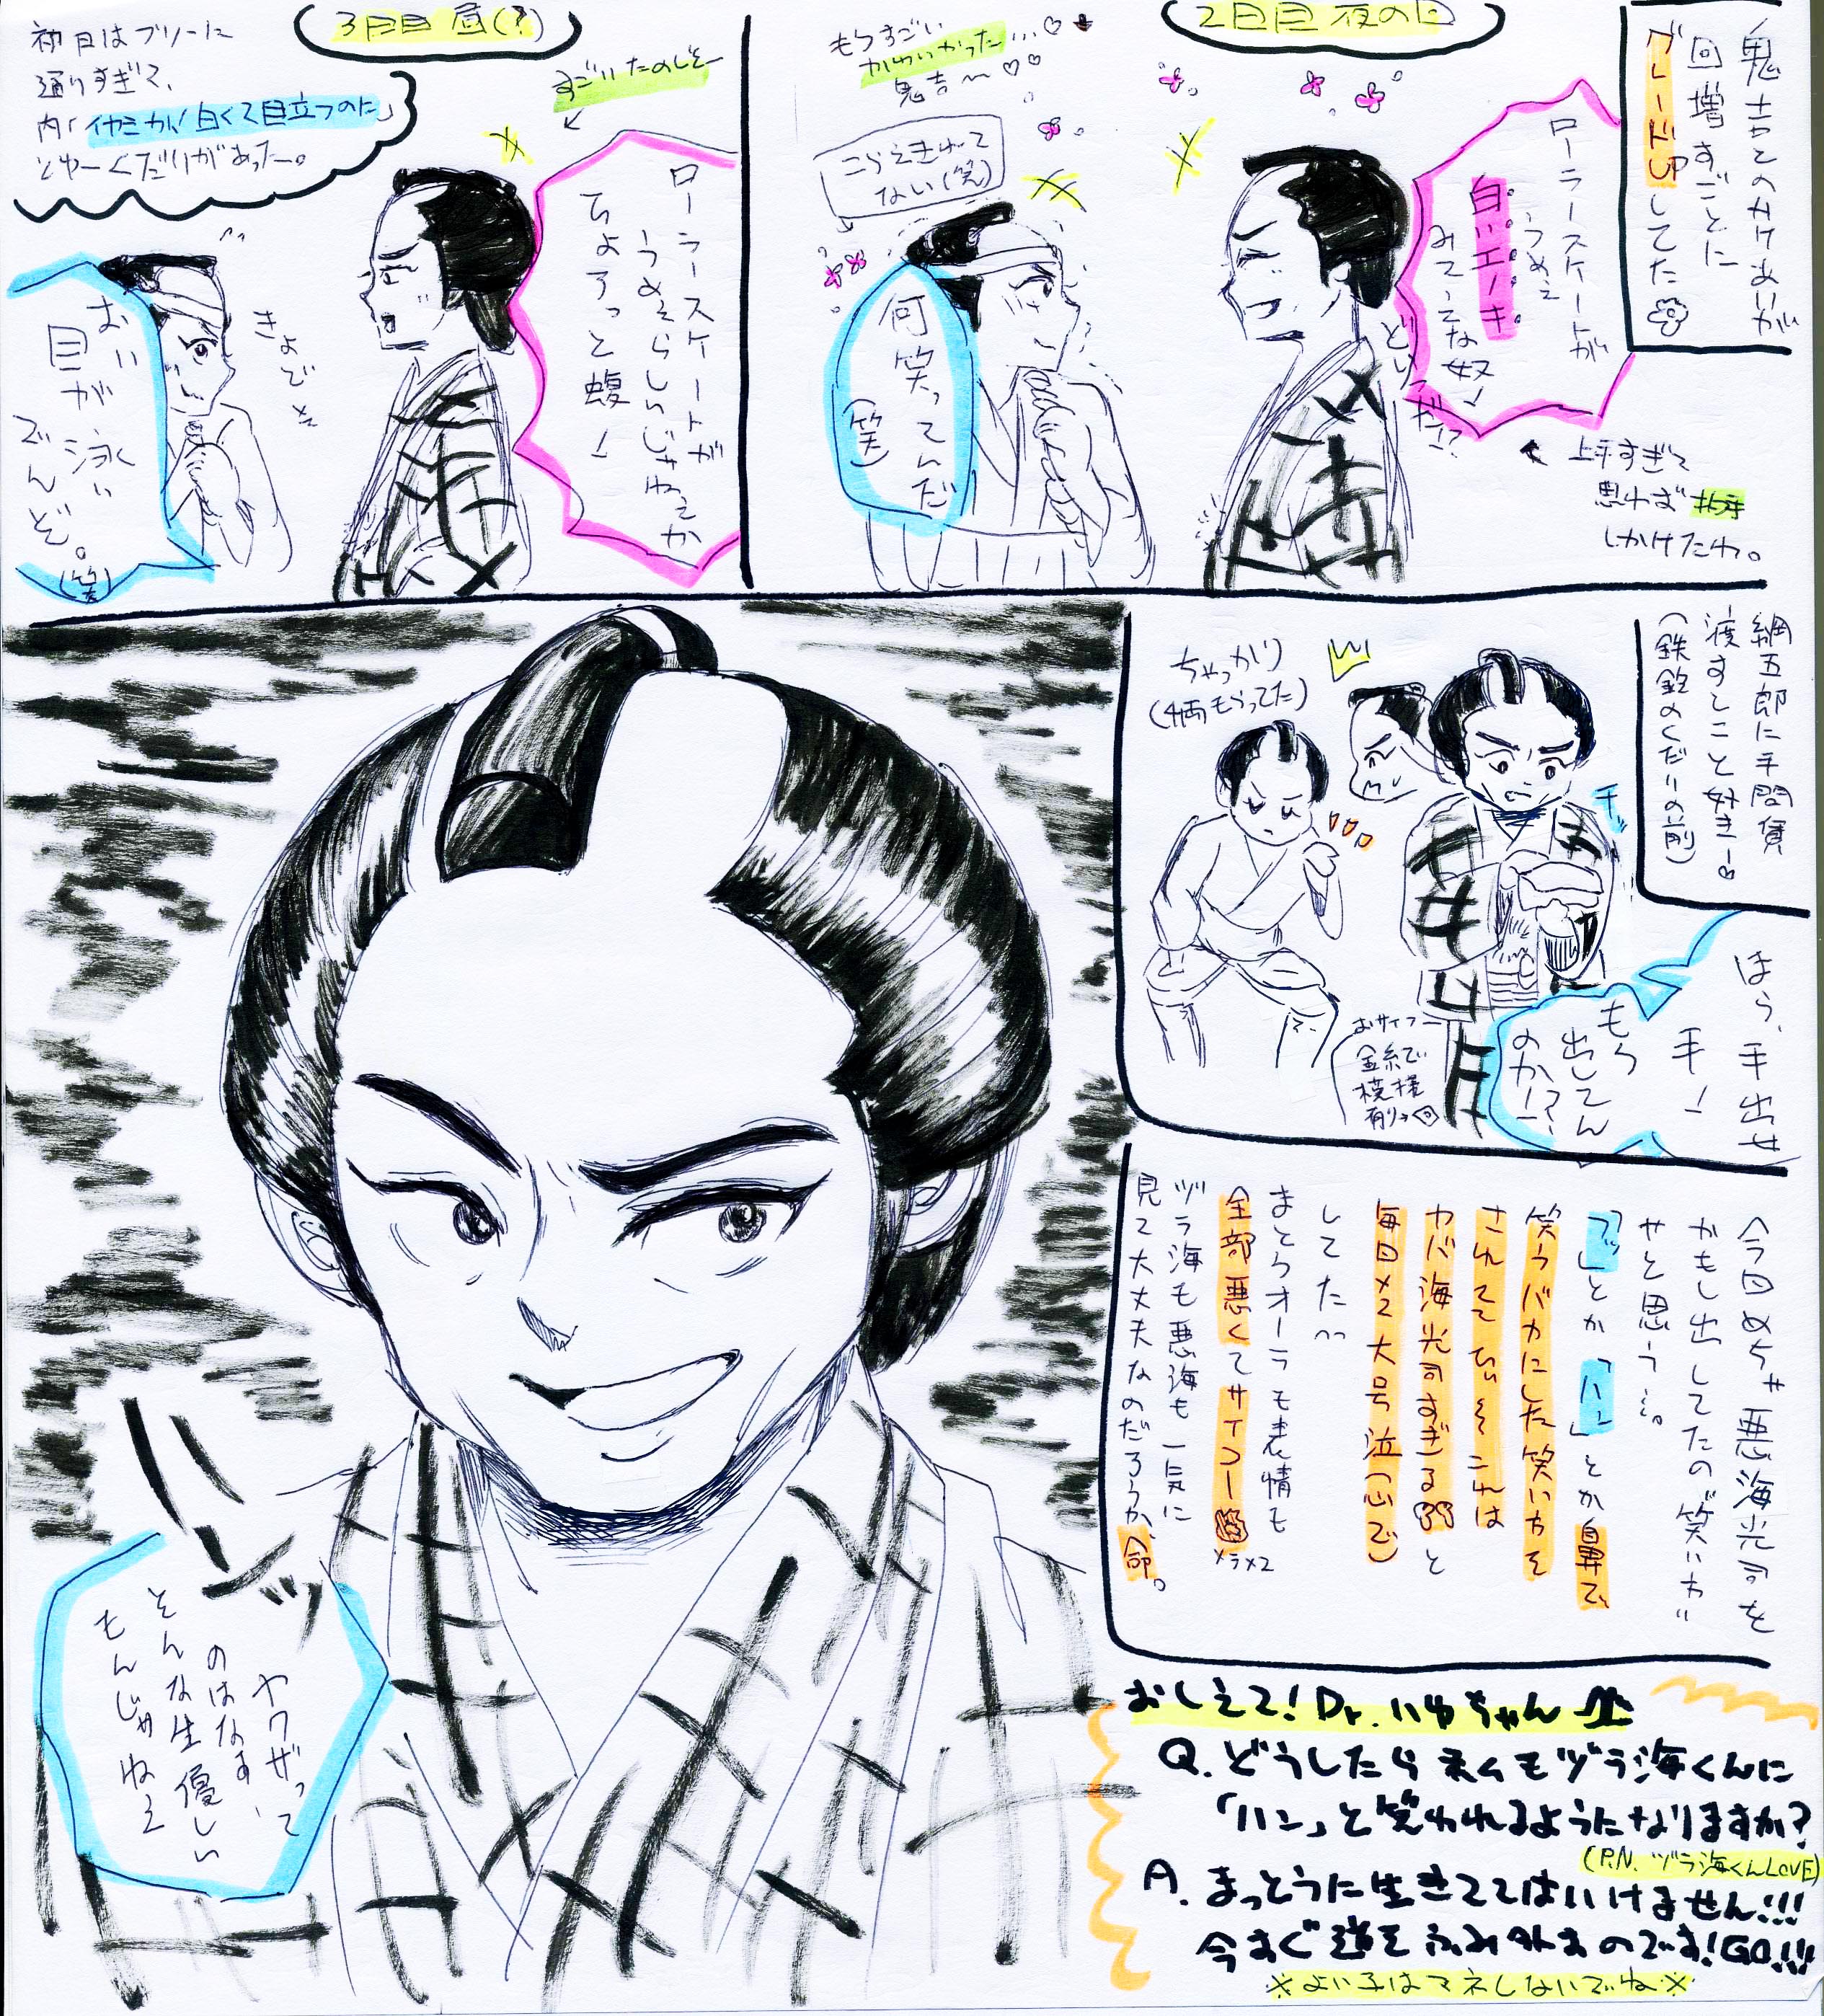 鬼吉とのかけあいが
回増すごとに
グレードUPしてた
2日目 夜の回
ローラースケートが
うめえ
白いエノキ
みてーな奴!
どいつだ!?
上手すぎて
思わず拍手
しかけたわ。
もうすごい
かわいかった…♡
鬼吉〜♡♡
こらえきれて
ない(笑)
何笑ってんだ
(笑)
3日目 昼(?)
すごいたのしそー
ローラースケートが
うめえらしいじゃねえか
ちょろっと蝮!
初日はフツーに
通りすぎて、
内「イヤミかい!白くて目立つのに」
とゆーくだりがあった。
きょど
おい
目が泳い
でんぞ。
(笑)
綱五郎に手間賃
渡すとこと好きー♡
(鉄砲のくだりの前)
ちゃっかり
(4両もらってた)
チッ
ほら、手出せ
手!
もう
出してん
のか!?
おサイフ
金糸で
模様
有り→
今回めちゃ悪海光司を
かもし出してたの“笑い方”
やと思う…。
「フッ」とか「ハン」とか鼻で、
笑うバカにした笑い方を
されてて
ヤバ海光司すぎると
毎日×2大号泣(心で)
してた
まとうオーラも表情も
全部悪くてサイコー
メラ×2
ヅラ海も悪海も一気に
見て大丈夫なのだろうか、命。
ヤクザって
のはなぁ、
そんな生優しい
もんじゃねえ
おしえて! Dr.いゆちゃん
Q. どうしたら私もヅラ海くんに
「ハン」と笑われるようになりますか?
(P.N. ヅラ海くんLOVE)
A. まっとうに生きててはいけません!!!
今すぐ道をふみ外すのです!GO!!!
※よい子はマネしないでね※